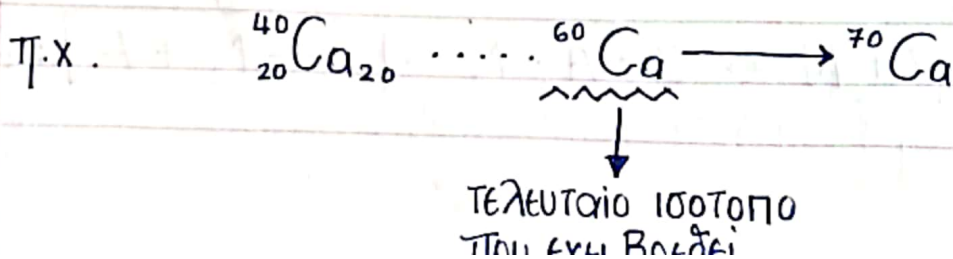 π.χ. ⁴⁰₂₀Ca₂₀ ..... ⁶⁰Ca → ⁷⁰Ca
τελευταίο ισοτοπο
που εχει βρεθεί